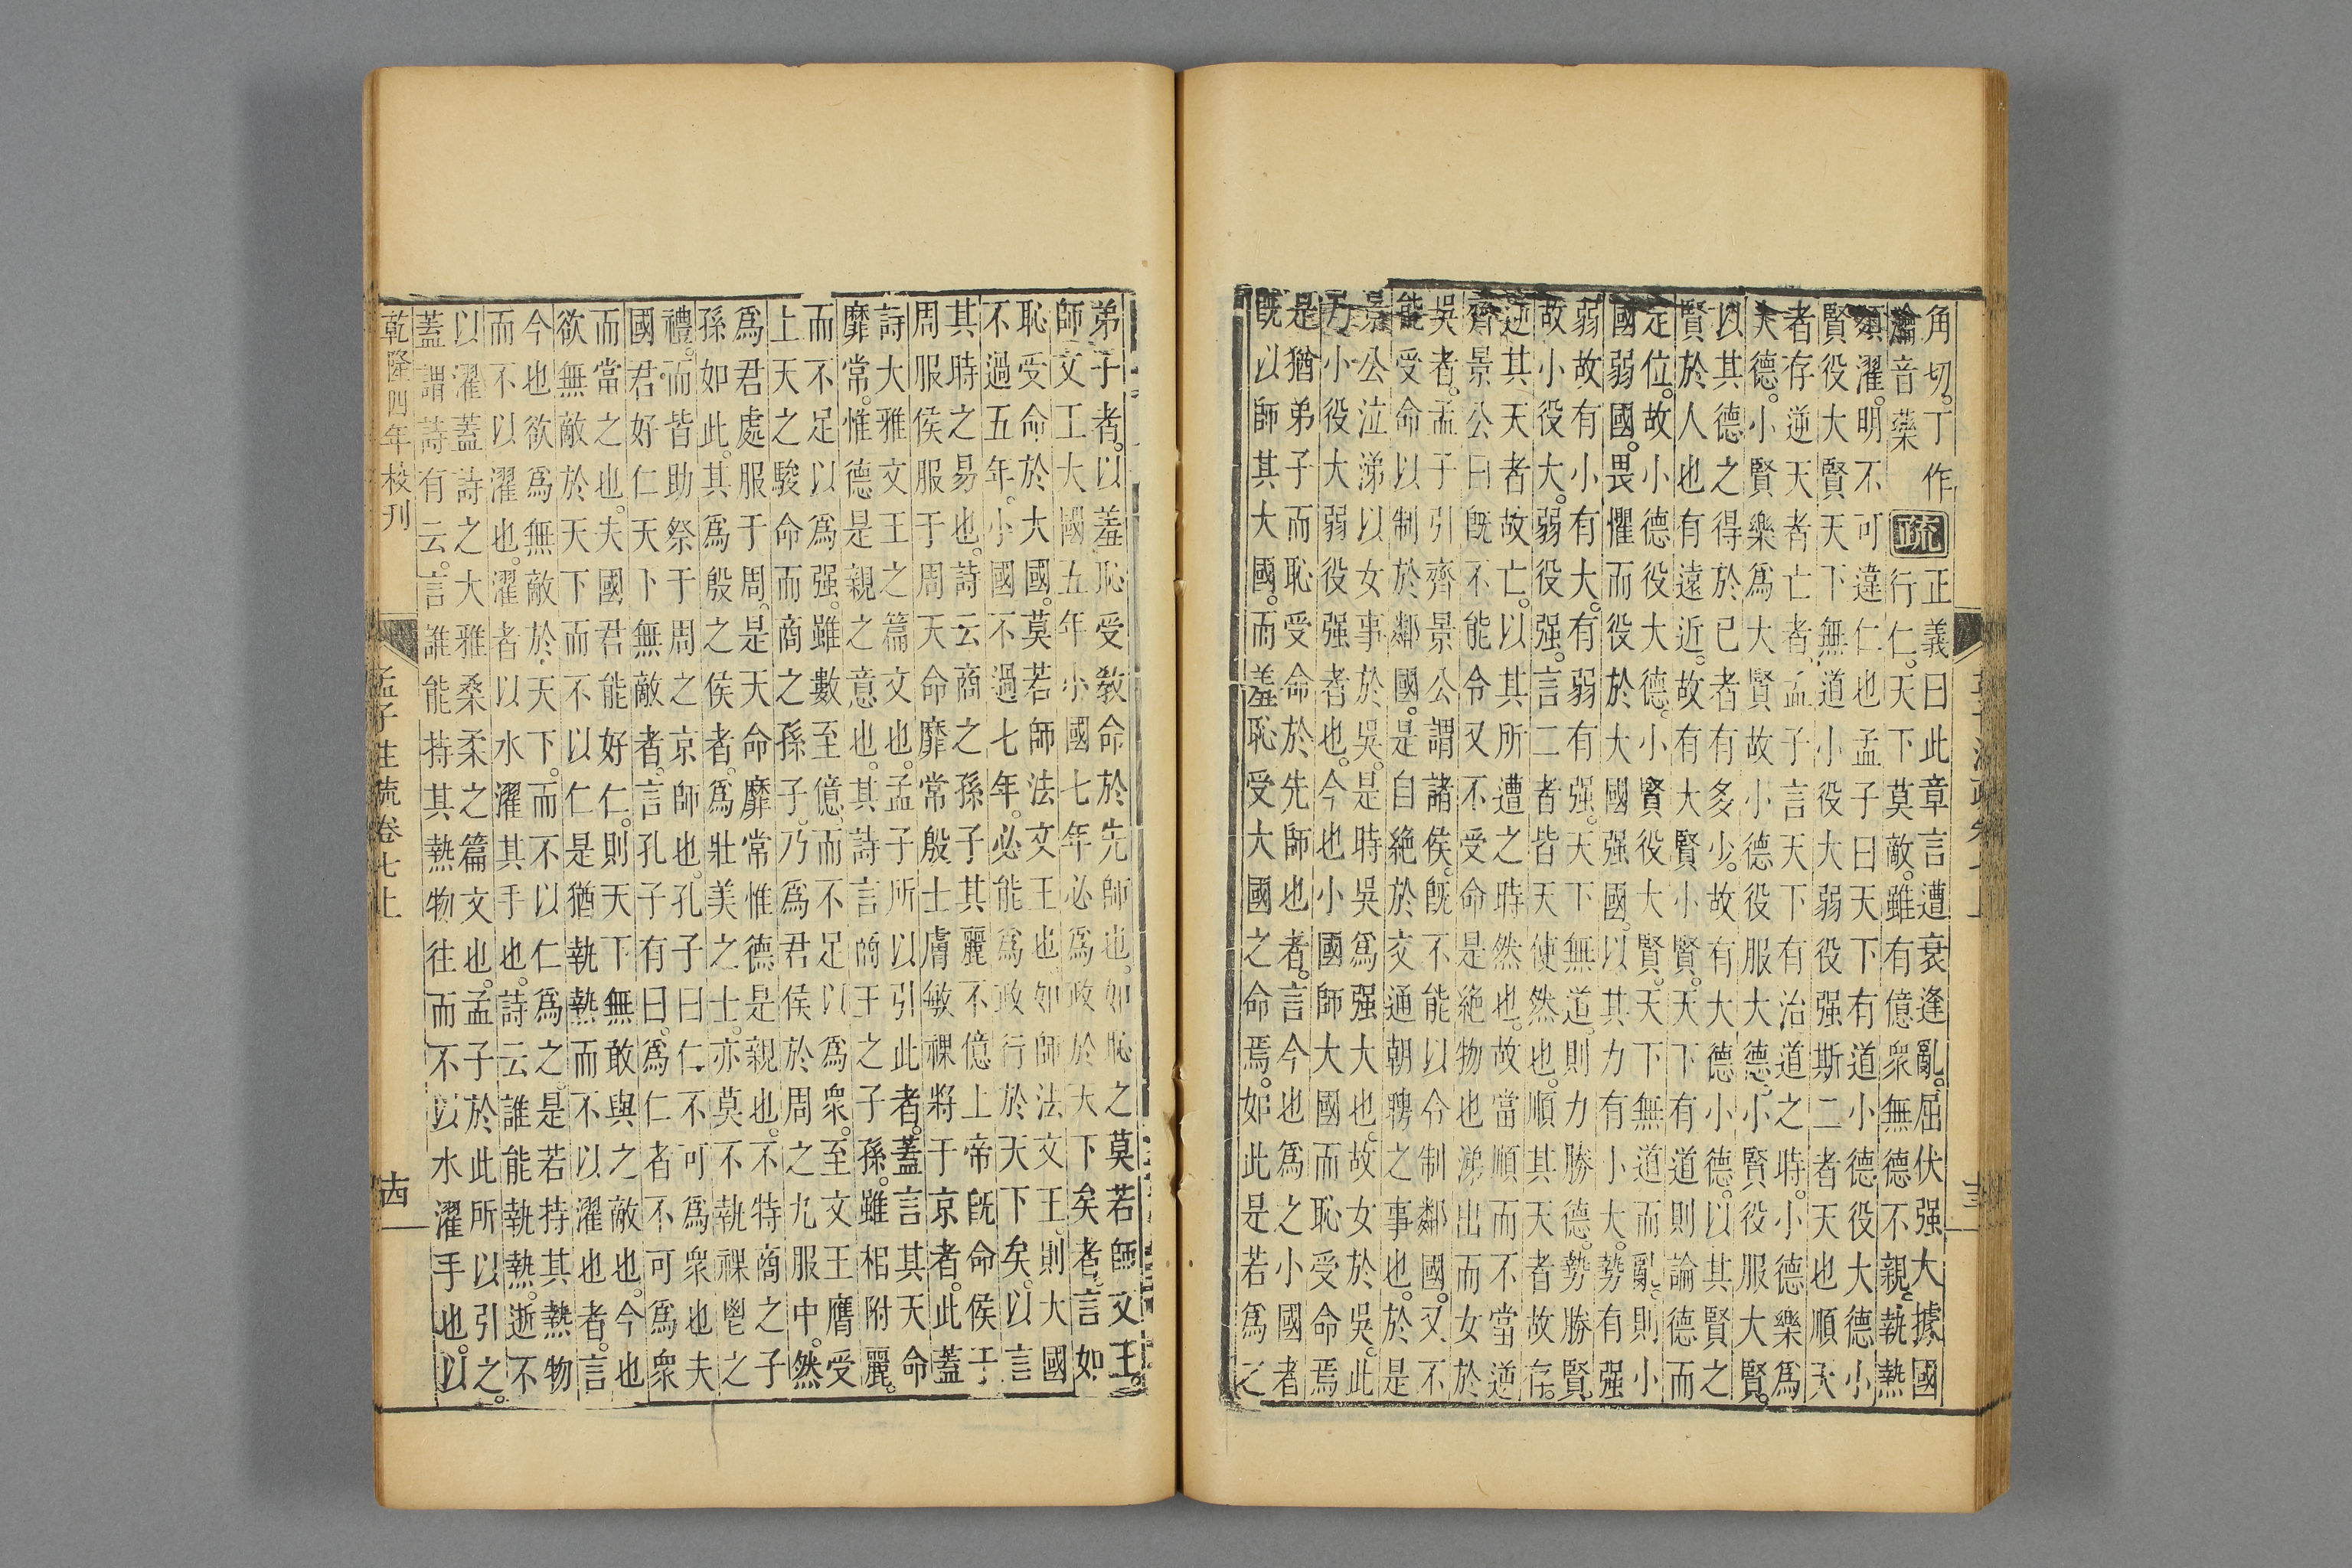 角切。丁作 疏 正義曰此章言遭衰逢亂。屈伏强大據國
瀹音藥 行仁。天下莫敵。雖有億衆無德不親。執熱
須濯。明不可違仁也孟子曰天下有道小德役大德小
賢役大賢天下無道小役大弱役强斯二者天也順天
者存逆天者亡者。孟子言天下有治道之時。小德樂爲
大德。小賢樂爲大賢故小德役服大德。小賢役服大賢。
以其德之得於已者有多少。故有大德小德。以其賢之
賢於人也有遠近。故有大賢小賢。天下有道則論德而
定位。故小德役大德。小賢役大賢。天下無道而亂。則小
國弱國。畏懼而役於大國强國。以其力有小大。勢有强
弱故有小有大。有弱有强。天下無道。則力勝德。勢勝賢。
故小役大。弱役强。言二者皆天使然也。順其天者故存。
逆其天者故亡。以其所遭之時然也。故當順而不當逆
齊景公曰旣不能令又不受命是絶物也涕出而女於
吳者。孟子引齊景公謂諸侯。旣不能以令制鄰國。又不
能受命以制於鄰國。是自絶於交通朝聘之事也。於是
景公泣涕以女事於吳。是時吳爲强大也。故女於吳。此
乃小役大弱役强者也。今也小國師大國而恥受命焉
是猶弟子而恥受命於先師也者。言今也爲之小國者
旣以師其大國。而羞恥受大國之命焉。如此是若爲之
弟子者。以羞恥受敎命於先師也。如恥之莫若師文王。
師文王大國五年小國七年必爲政於天下矣者。言如
恥受命於大國。莫若師法文王也。如師法文王。則大國
不過五年。小國不過七年。必能爲政行於天下矣。以言
其時之易也。詩云商之孫子其麗不億上帝旣命侯于
周服侯服于周天命靡常殷士膚敏祼將于京者。此蓋
詩大雅文王之篇文也。孟子所以引此者。蓋言其天命
靡常。惟德是親之意也。其詩言商王之子孫。雖相附麗。
而不足以爲强。雖數至億。而不足以爲衆。至文王膺受
上天之駿命而商之孫子。乃爲君侯於周之九服中。然
爲君處服于周。是天命靡常惟德是親也。不特商之子
孫如此。其爲殷之侯者。爲壯美之士。亦莫不執祼鬯之
禮。而皆助祭于周之京師也。孔子曰仁不可爲衆也夫
國君好仁天下無敵者。言孔子有曰。爲仁者不可爲衆
而當之也。夫國君能好仁。則天下無敢與之敵也。今也
欲無敵於天下而不以仁是猶執熱而不以濯也者。言
今也欲爲無敵於天下。而不以仁爲之。是若持其熱物
而不以濯也。濯者以水濯其手也。詩云誰能執熱。逝不
以濯蓋詩之大雅桑柔之篇文也。孟子於此所以引之。
蓋謂詩有云。言誰能持其熱物往而不以水濯手也。以
乾隆四年校刊
孟子注疏卷七上
十四